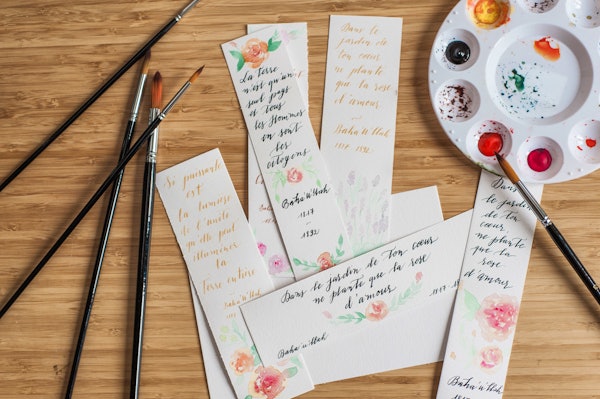 La terre
n'est qu'un
seul pays
et tous
les Hommes
en sont
les citoyens
Baha'u'llah
1817
- 1892
Dans le
jardin de
ton cœur
ne plante
que la rose
d'amour
Baha'u'llah
1817-1892.
Si puissante
est
la lumière
de l'unité
qu'elle peut
illuminer
la
Terre entière
Baha'u'llah
Dans le jardin de Ton cœur
ne plante que la rose
d'amour
Baha'u'llah
1817
Dans le
jardin
de ton
cœur ne
plante
que la
rose
d'amour
Baha'u'llah